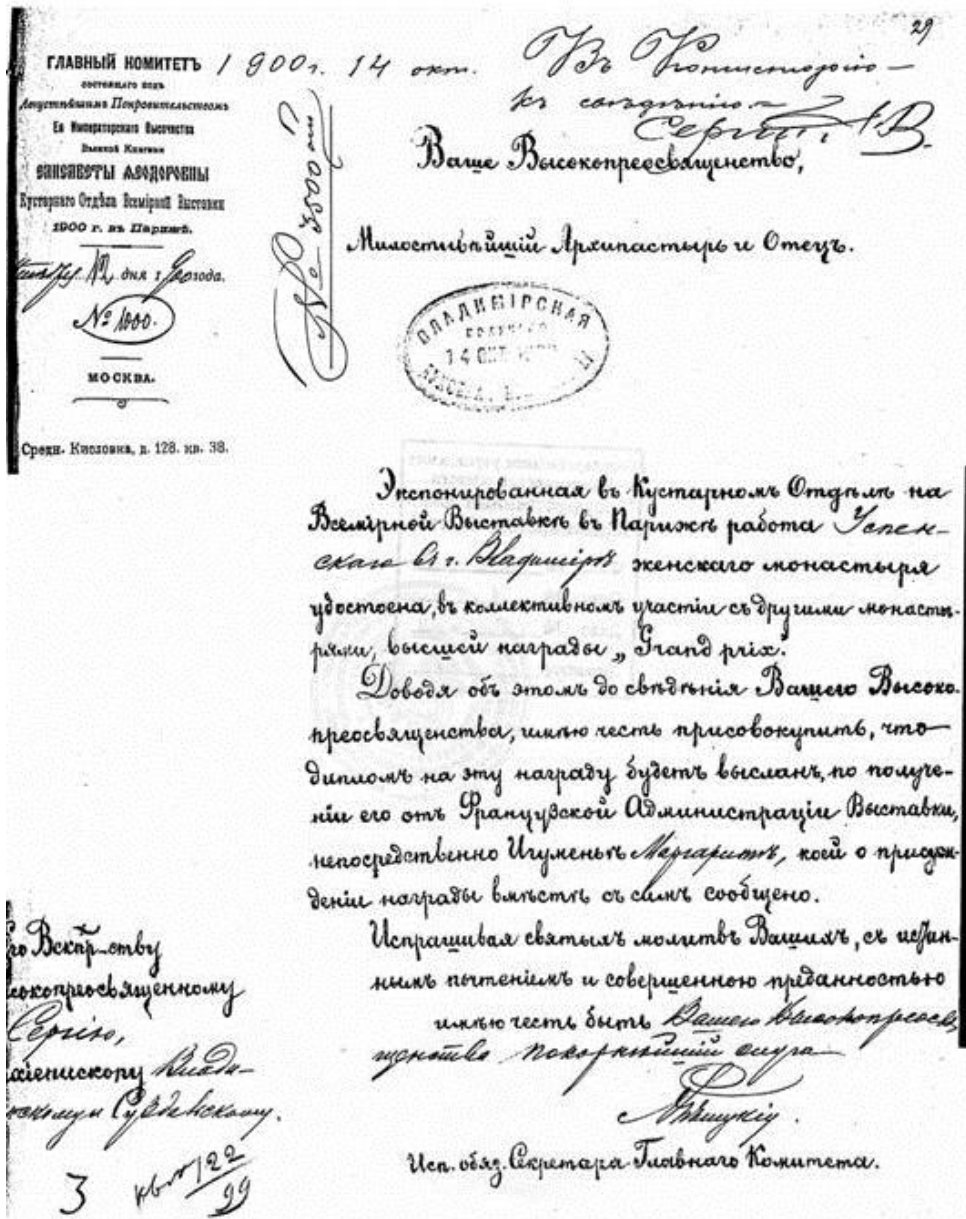 29
ГЛАВНЫЙ КОМИТЕТЪ
состоящаго подъ
Августѣйшимъ Покровительствомъ
Ея Императорскаго Высочества
Великой Княгини
ЕЛИСАВЕТЫ ѲЕОДОРОВНЫ
Кустарнаго Отдѣла Всемірной Выставки
1900 г. въ Парижѣ.
12 дня 1900 года.
№ 1000.
МОСКВА.
Средн. Кисловка, д. 128. кв. 38.
1900 г. 14 окт.
Въ Консисторію
къ свѣдѣнію
Сергій, А. В.
№ 5800
Ваше Высокопреосвященство,
Милостивѣйшій Архипастырь и Отецъ.
ВЛАДИМІРСКАЯ
14 ОКТ
Экспонированная въ Кустарномъ Отдѣлѣ на
Всемірной Выставкѣ въ Парижѣ работа Успен-
скаго въ г. Владимірѣ женскаго монастыря
удостоена, въ коллективномъ участіи съ другими монасты-
рями, высшей награды „Grand prix".
Доводя объ этомъ до свѣдѣнія Вашего Высоко-
преосвященства, имѣю честь присовокупить, что
дипломъ на эту награду будетъ высланъ, по получе-
ніи его отъ Французской Администраціи Выставки,
непосредственно Игуменьѣ Маргаритѣ, коей о присуж-
деніи награды вмѣстѣ съ симъ сообщено.
Испрашивая святыхъ молитвъ Вашихъ, съ истин-
нымъ почтеніемъ и совершенною преданностью
имѣю честь быть Вашего Высокопреосвя
щенства покорнѣйшій слуга
Исп. обяз. Секретаря Главнаго Комитета.
го Вскпр-ству
сокопреосвященному
Сергію,
хіепископу Влади-
рскому и Суздальскому.
3
122
99